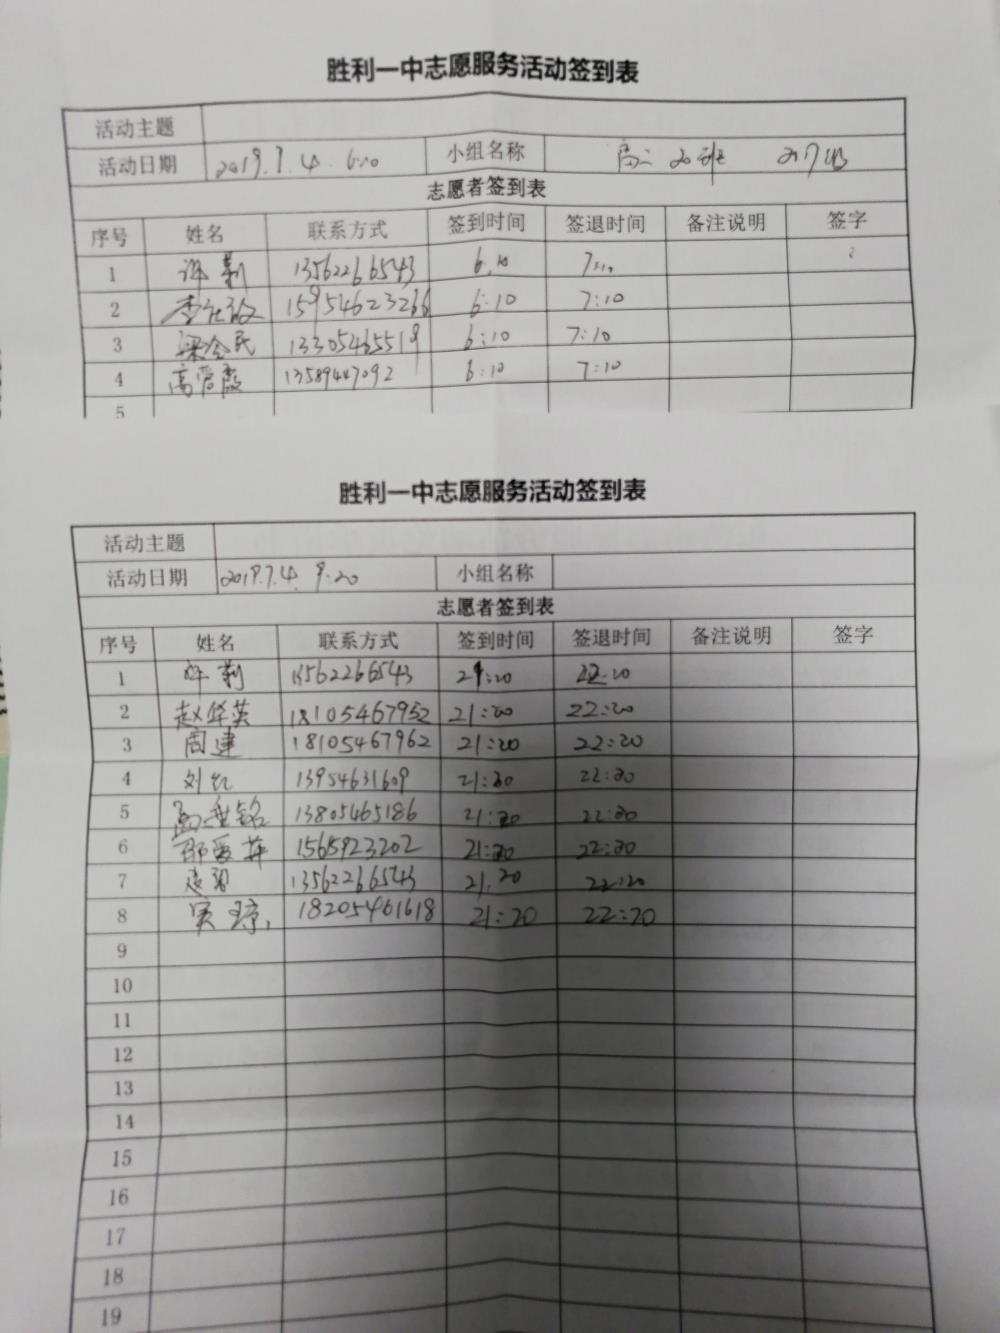 胜利一中志愿服务活动签到表
活动主题
活动日期 2019.7.4. 6:10 小组名称 高二 20班
志愿者签到表
序号 姓名 联系方式 签到时间 签退时间 备注说明 签字
1 许莉 13562266543 6.10 7:10
2 15954623266 6:10 7:10
3 梁金民 13305465519 6:10 7:10
4 高管霞 13589447092 6:10 7:10
5
胜利一中志愿服务活动签到表
活动主题
活动日期 2019.7.4. 9:20 小组名称
志愿者签到表
序号 姓名 联系方式 签到时间 签退时间 备注说明 签字
1 许莉 13562266543 21:20 22:20
2 赵华英 18105467952 21:20 22:20
3 周建 18105467962 21:20 22:20
4 刘红 13954631609 21:20 22:20
5 13805465186 21:20 22:20
6 邵爱萍 1565923202 21:20 22:20
7 13562266543 21.20 22:20
8 18205461618 21:20 22:20
9
10
11
12
13
14
15
16
17
18
19